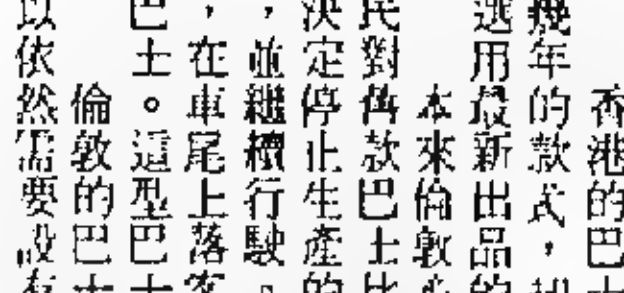 香港的巴士
幾年的款式，却
選用最新出品的
本來倫敦
民對舊款巴士比
決定停止生產的
，並繼續行駛。
，在車尾上落客
巴士。這型巴士
倫敦的巴士
以依然需要設有